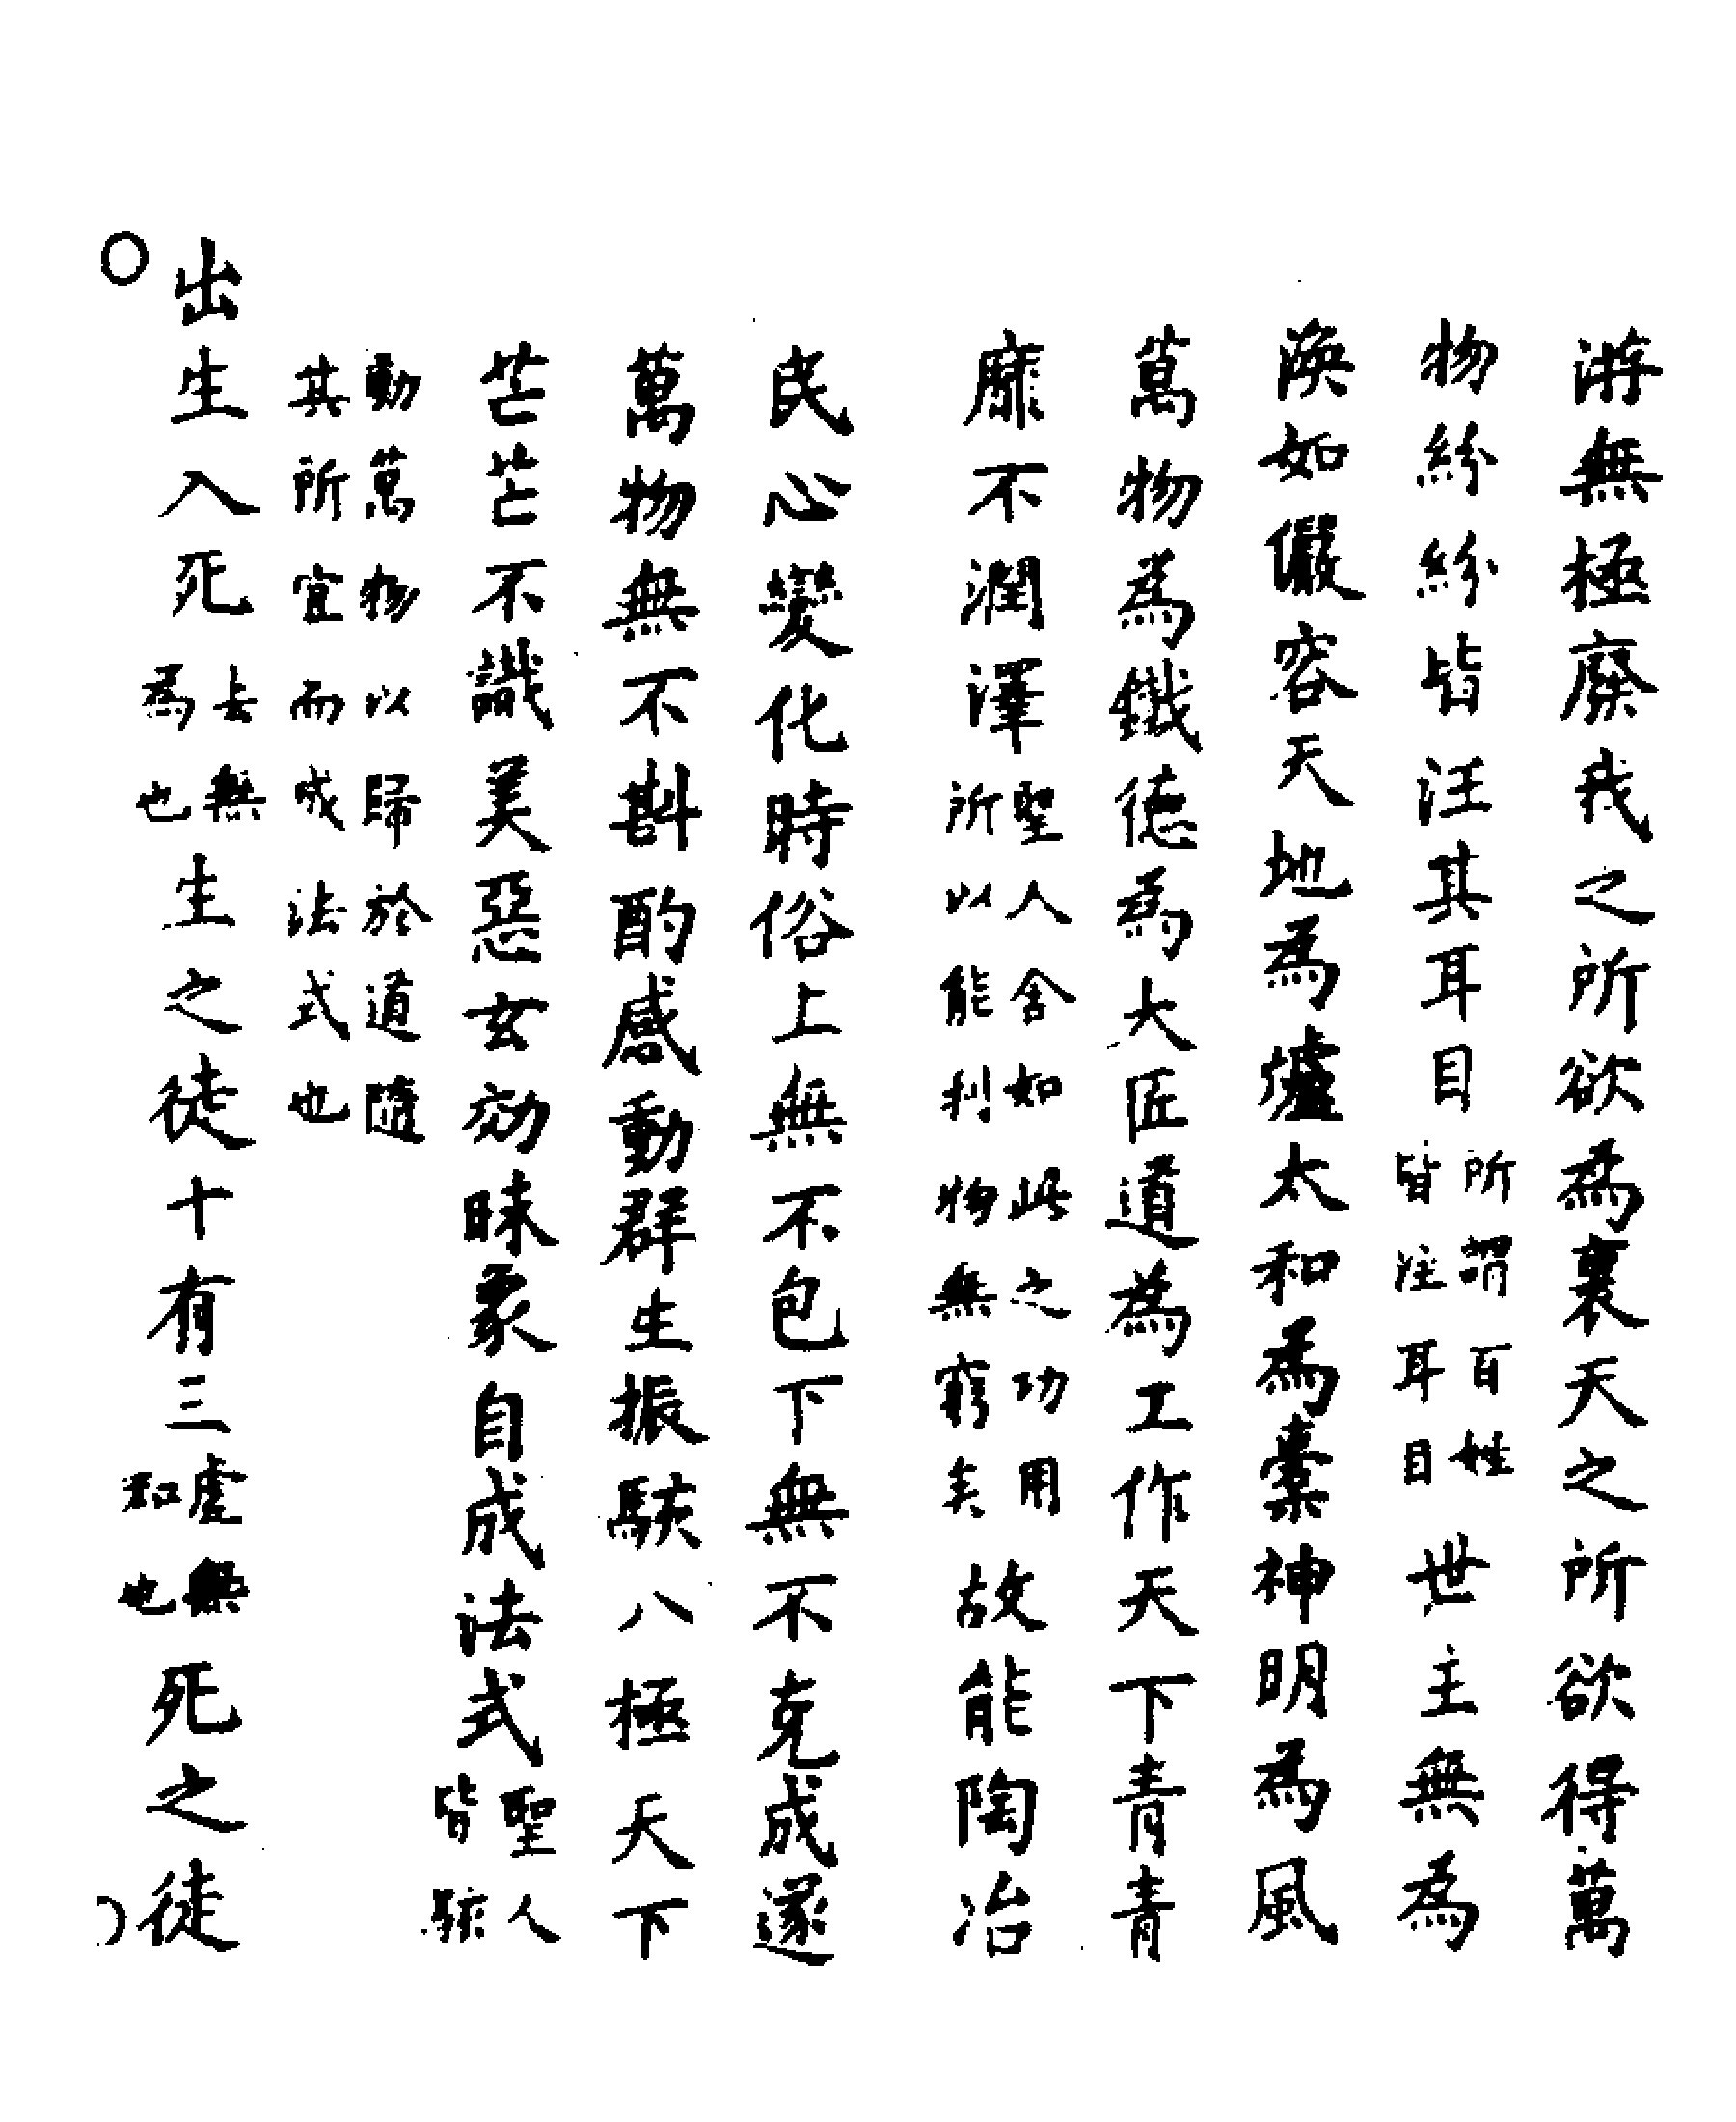 游無極廢我之所欲為裏天之所欲得萬
物紛紛皆汪其耳目所謂百姓皆注耳目世主無為
渙如儼容天地為爐太和為橐神明為風
萬物為鐵德為大匠道為工作天下青青
靡不潤澤聖人舍如此之功用所以能利物無窮矣故能陶冶
民心變化時俗上無不包下無不克成遂
萬物無不斟酌感動群生振駭八極天下
芒芒不識美惡玄効昧象自成法式聖人皆駭
動萬物以歸於道隨其所宜而成法式也
出生入死去無為也生之徒十有三虛無和也死之徒